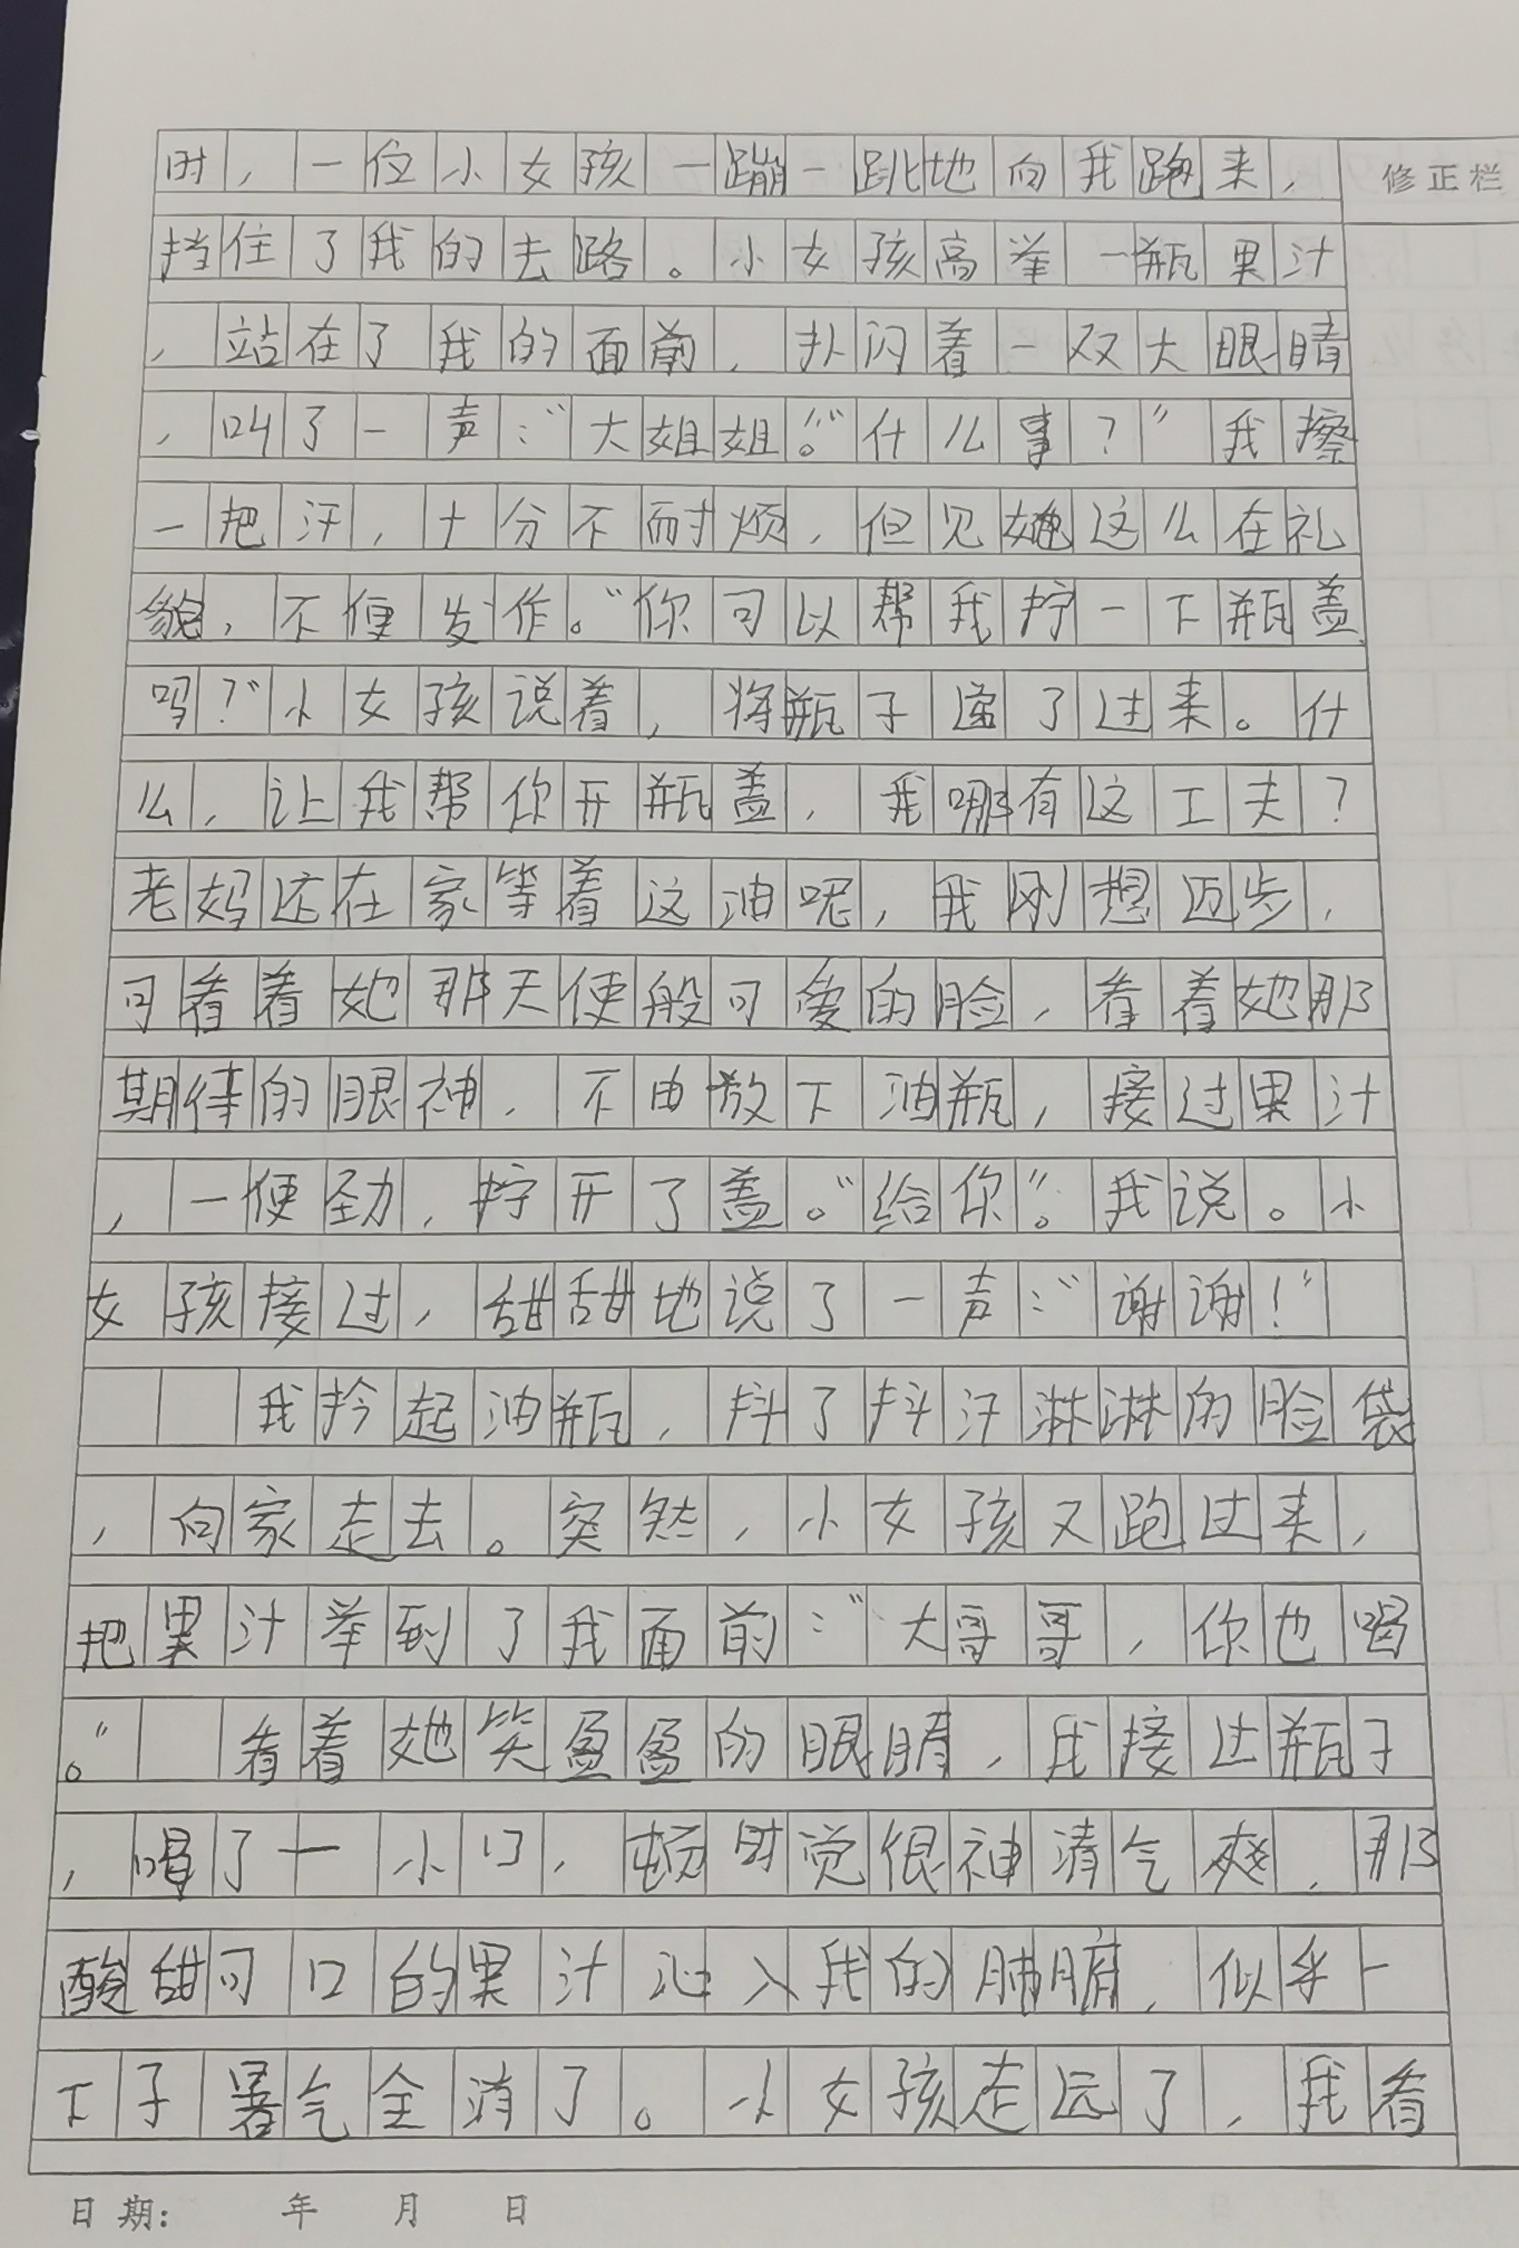 时，一位小女孩一蹦一跳地向我跑来，
修正栏
挡住了我的去路。小女孩高举一瓶果汁
，站在了我的面前，扑闪着一双大眼睛
，叫了一声：“大姐姐。”“什么事？”我擦
一把汗，十分不耐烦，但见她这么在礼
貌，不便发作。“你可以帮我拧一下瓶盖
吗？”小女孩说着，将瓶子递了过来。什
么，让我帮你开瓶盖，我哪有这工夫？
老妈还在家等着这油呢，我刚想迈步，
可看着她那天使般可爱的脸，看着她那
期待的眼神，不由放下油瓶，接过果汁
，一使劲，拧开了盖。“给你”。我说。小
女孩接过，甜甜地说了一声：“谢谢！”
我拎起油瓶，抖了抖汗淋淋的脸袋
，向家走去。突然，小女孩又跑过来，
把果汁举到了我面前：“大哥哥，你也喝
。”看着她笑盈盈的眼睛，我接过瓶子
，喝了一小口，顿时觉很神清气爽，那
酸甜可口的果汁沁入我的肺腑，似乎一
下子暑气全消了。小女孩走远了，我看
日期： 年 月 日